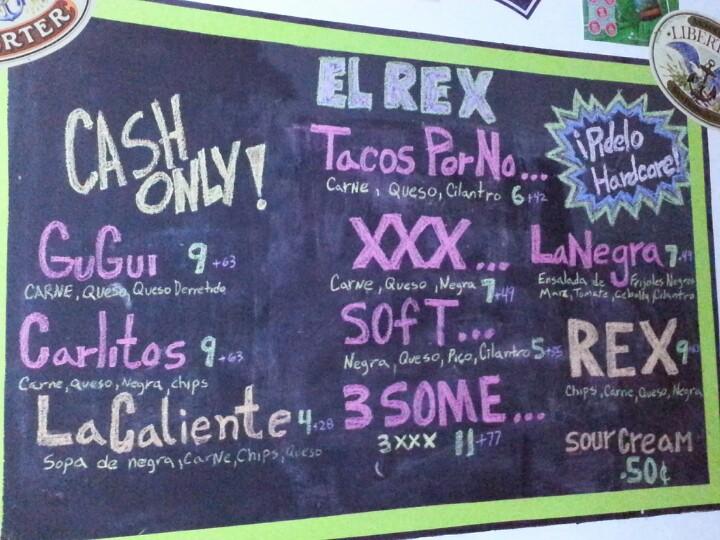 ORTER
LIBER
EL REX
CASH
ONLY!
Tacos PorNo...
Carne, Queso, Cilantro 6 +42
¡Pídelo
Hardcore!
GuGui 9 +63
CARNE, Queso, Queso Derretido
XXX...
Carne, Queso, Negra 7 +49
LaNegra 7 +49
Ensalada de Frijoles Negros
Maiz, Tomate, Cebolla, Cilantro
Carlitos 9 +63
Carne, Queso, Negra, chips
SOfT...
Negra, Queso, Pico, Cilantro 5 +35
REX 9
Chips, Carne, Queso, Negra
La Caliente 4 +28
Sopa de negra, Carne, Chips, Queso
3 SOME...
3 xxx 11 +77
Sour Cream
.50¢